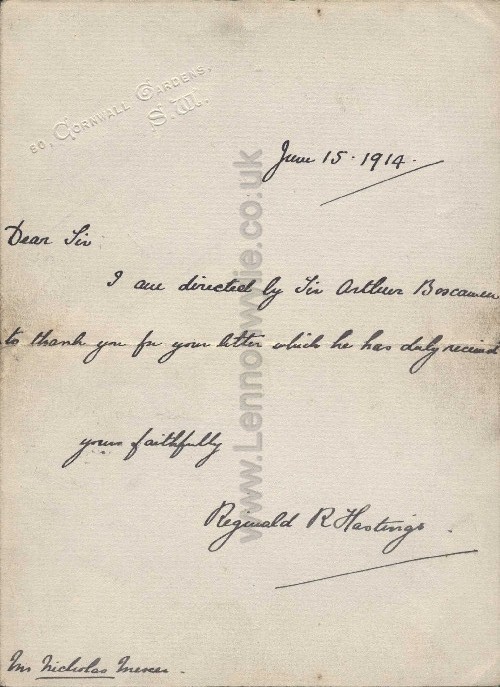 80, CORNWALL GARDENS,
S.W.
June 15. 1914.
Dear Sir
I am directed by Sir Arthur Boscawen
to thank you for your letter which he has duly received
yours faithfully
Reginald R Hastings.
Mr Nicholas Mercer.
www.LennoxWylie.co.uk